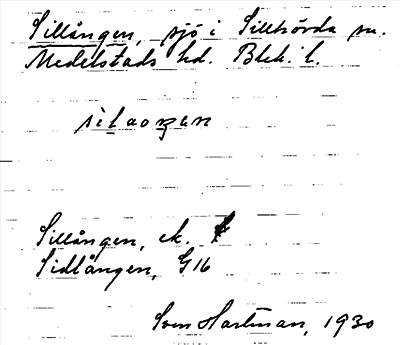 Sillången, sjö i Sillhövda sn.
Medelstads hd. Blek. l.
Sillången, ek.
Sidlången, G16
Sven Hartman, 1930